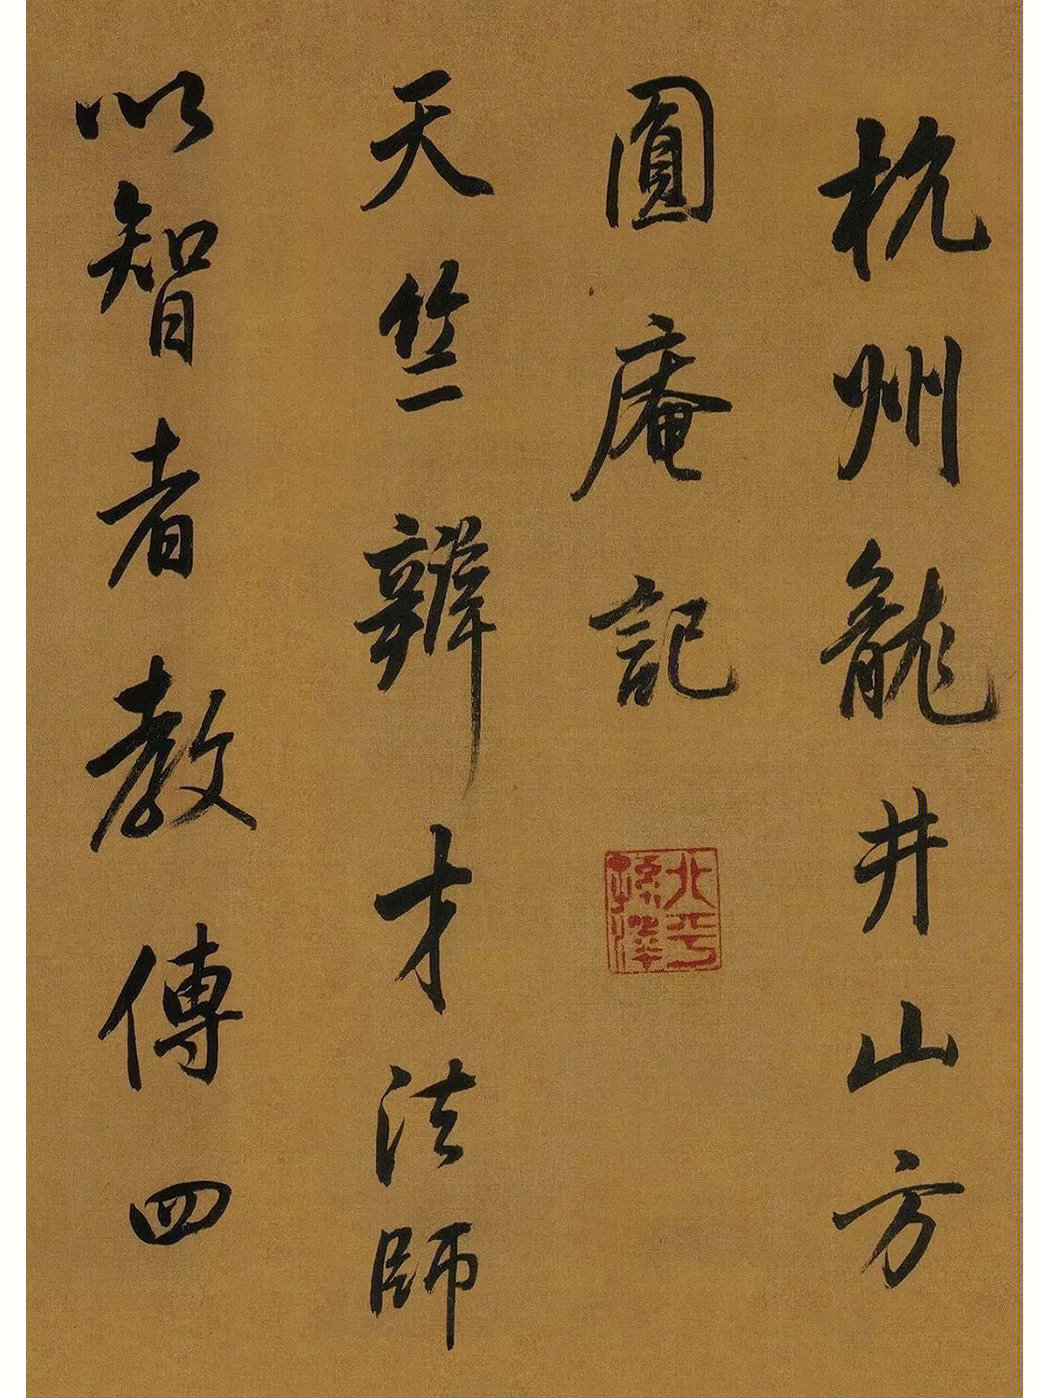 杭州龍井山方
圓庵記
北平
天竺辯才法師
以智者教傳四